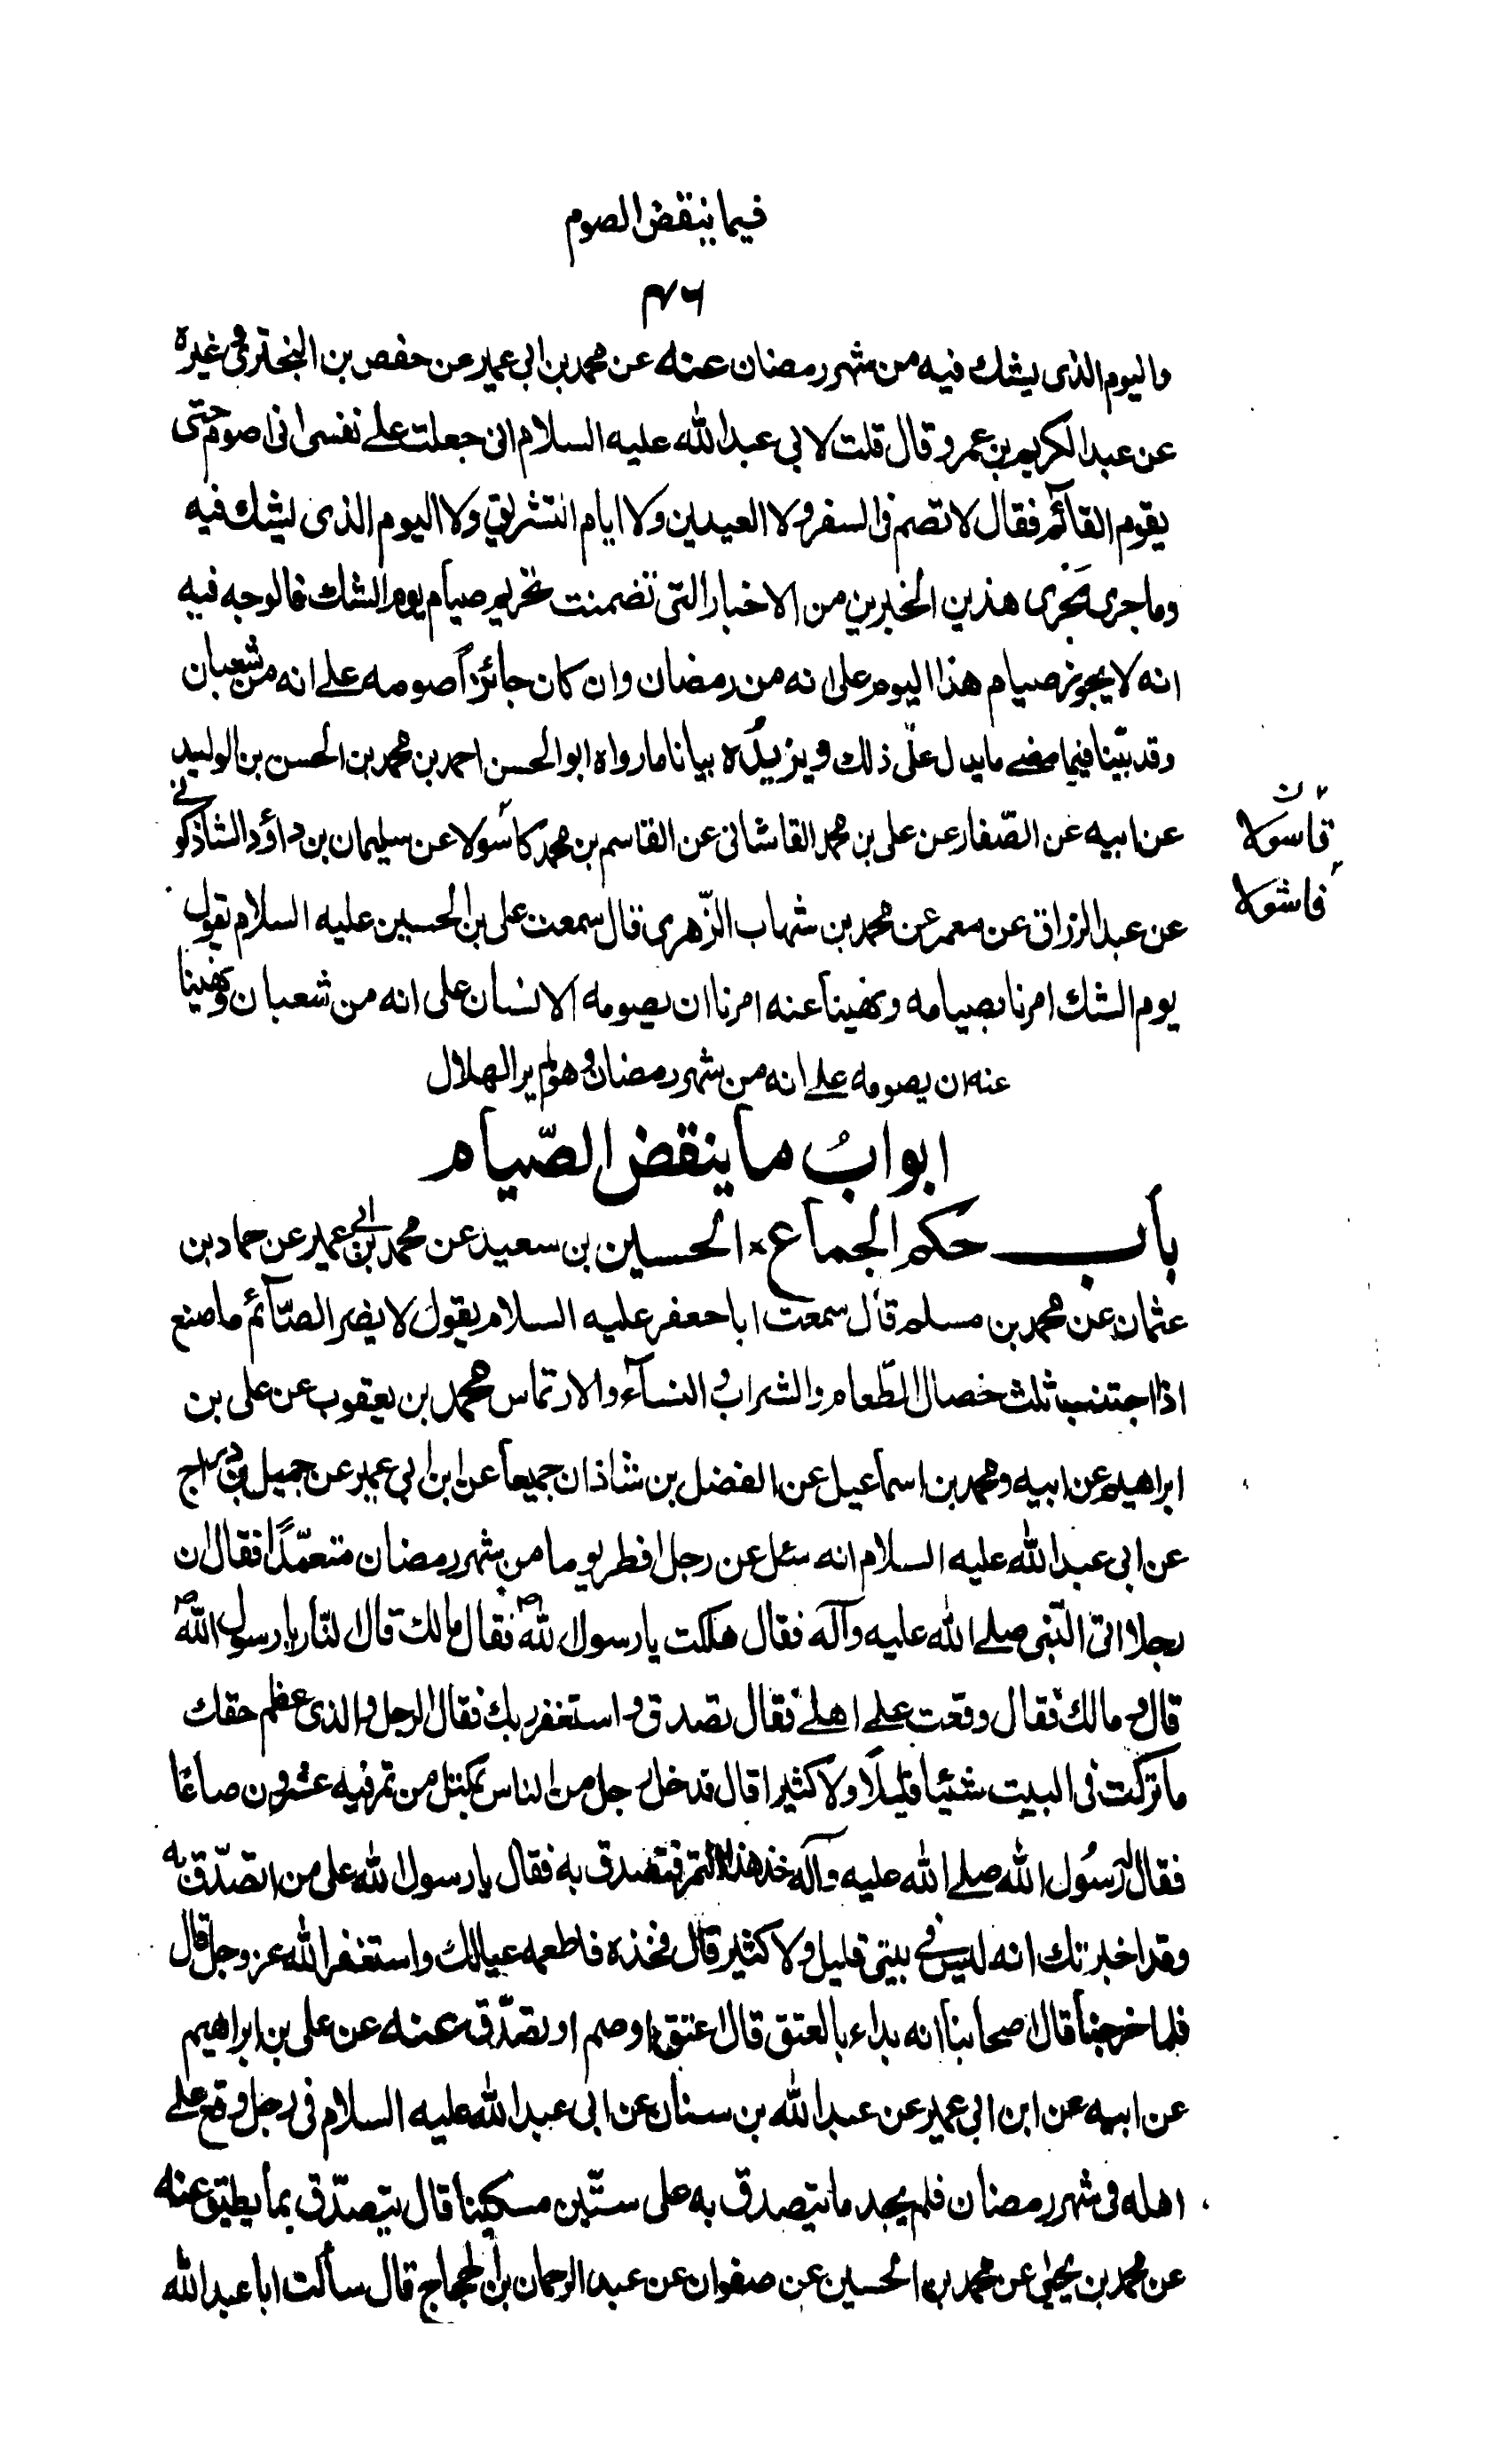 فيما ينقض الصوم
٤٦
واليوم الذى يشك فيه من شهر رمضان عنه عن محمد بن ابى عمير عن حفص بن البخترى وغيره
عن عبد الكريم بن عمرو قال قلت لابى عبد الله عليه السلام انى جعلت على نفسى انى اصوم حتى
يقوم القآئم فقال لا تصم فى السفر ولا العيدين ولا ايام التشريق ولا اليوم الذى يشك فيه
وما جرى مَجرى هذين الخبرين من الاخبار التى تضمنت تحريم صيام يوم الشك فالوجه فيه
انه لا يجوز صيام هذا اليوم على انه من رمضان وان كان جائزا صومه على انه من شعبان
وقد بيّنا فيما مضى ما يدل على ذلك ويزيده بيانا ما رواه ابو الحسن احمد بن محمد بن الحسن بن الوليد
عن ابيه عن الصّفار عن على بن محمد القاشانى عن القاسم بن محمد كاسولا عن سليمان بن داؤد الشاذكونى
قاسولا
فاشولا
عن عبد الرزاق عن معمر عن محمد بن شهاب الزّهرى قال سمعت على بن الحسين عليه السلام يقول
يوم الشك امرنا بصيامه ونهينا عنه امرنا ان يصومه الانسان على انه من شعبان ونهينا
عنه ان يصومه على انه من شهر رمضان وهو لم ير الهلال
ابوابُ ما ينقض الصّيام
باب حكم الجماع الحسين بن سعيد عن محمد بن ابى عمير عن حماد بن
عثمان عن محمد بن مسلم قال سمعت ابا جعفر عليه السلام يقول لا يضر الصّآئم ما صنع
اذا اجتنب ثلث خصال الطّعام والشراب والنسآء والارتماس محمد بن يعقوب عن على بن
ابراهيم عن ابيه ومحمد بن اسماعيل عن الفضل بن شاذان جميعا عن ابن ابى عمير عن جميل بن دراج
عن ابى عبد الله عليه السلام انه سئل عن رجل افطر يوما من شهر رمضان متعمّدًا فقال ان
رجلا اتى النّبى صلى الله عليه وآله فقال هلكت يا رسول الله ص فقال مالك قال النّار يا رسول الله ص
قال ومالك فقال وقعت على اهلى فقال تصدق واستغفر ربك فقال الرجل والذى عظم حقك
ما تركت فى البيت شيئا قليلًا ولا كثيرا قال فدخل رجل من الناس بمكتل من تمر فيه عشرون صاعًا
فقال له رسُول الله صلى الله عليه وآله خذ هذا التمر فتصدق به فقال يا رسول الله على من اتصدّق به
وقد اخبرتك انه ليس فى بيتى قليل ولا كثير قال فخذه فاطعمه عيالك واستغفر الله عز وجل قال
فلما خرجنا قال اصحابنا انه بداء بالعتق قال اعتق او صم او تصدّق عنه عن على بن ابراهيم
عن ابيه عن ابن ابى عمير عن عبد الله بن سنان عن ابى عبد الله عليه السلام فى رجل وقع على
اهله فى شهر رمضان فلم يجد ما يتصدق به على ستّين مسكينا قال يتصدّق بما يطيق عنه
عن محمد بن يحيى عن محمد بن الحسين عن صفوان عن عبد الرحمان بن الحجاج قال سألت ابا عبد الله